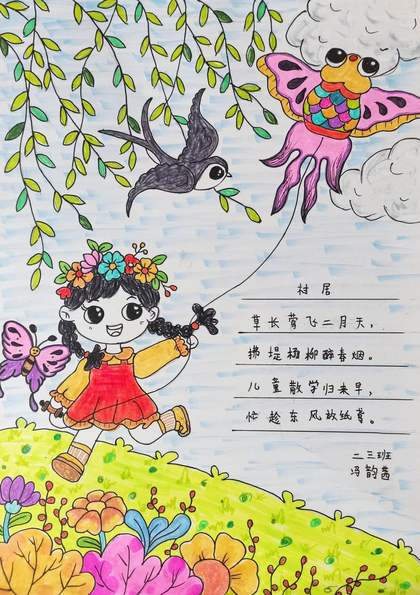 村居
草长莺飞二月天，
拂堤杨柳醉春烟。
儿童散学归来早，
忙趁东风放纸鸢。
二三班
冯韵茜